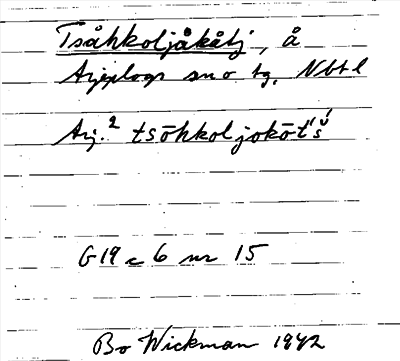 Tsåhkoljåkåtj, å
Arjeplogs sn o tg, Nbtl
Arj.² tsōhkoljokōt́š́
G19 c 6 nr 15
Bo Wickman 1942